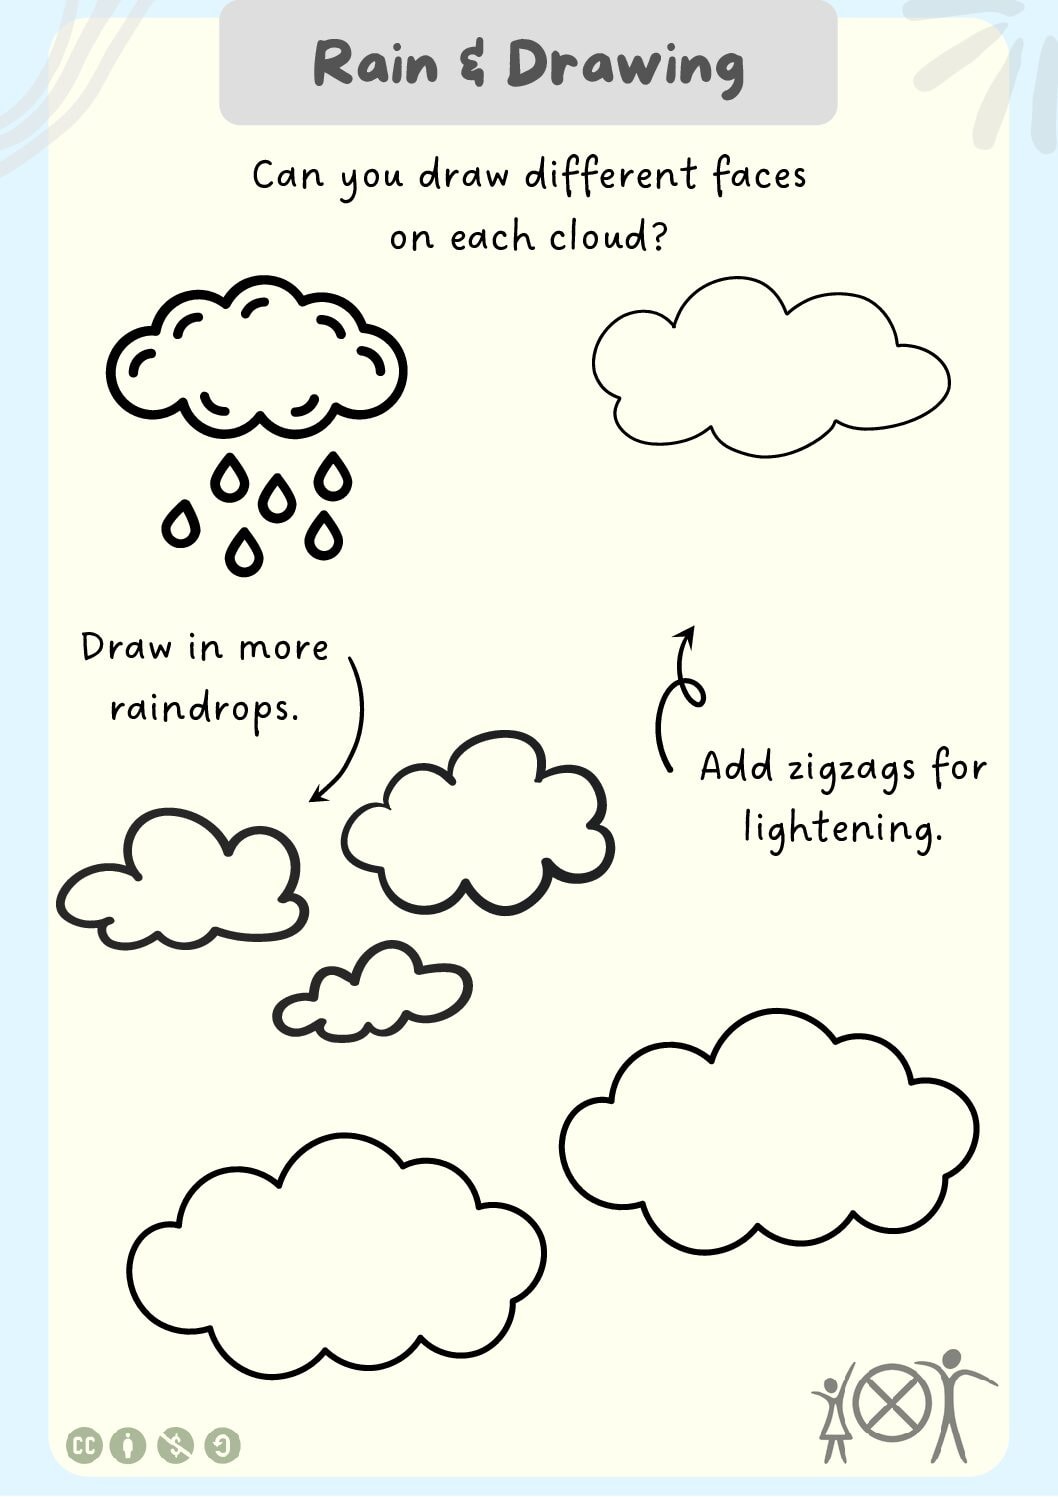 Rain & Drawing
Can you draw different faces
on each cloud?
Draw in more
raindrops.
Add zigzags for
lightening.
CC